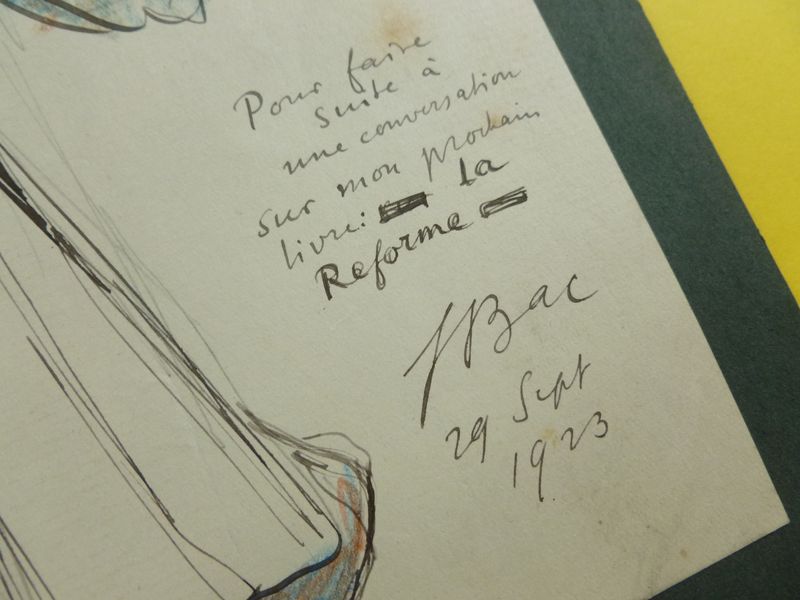 Pour faire
suite à
une conversation
sur mon prochain
livre: la
Reforme
FBac
29 Sept
1923